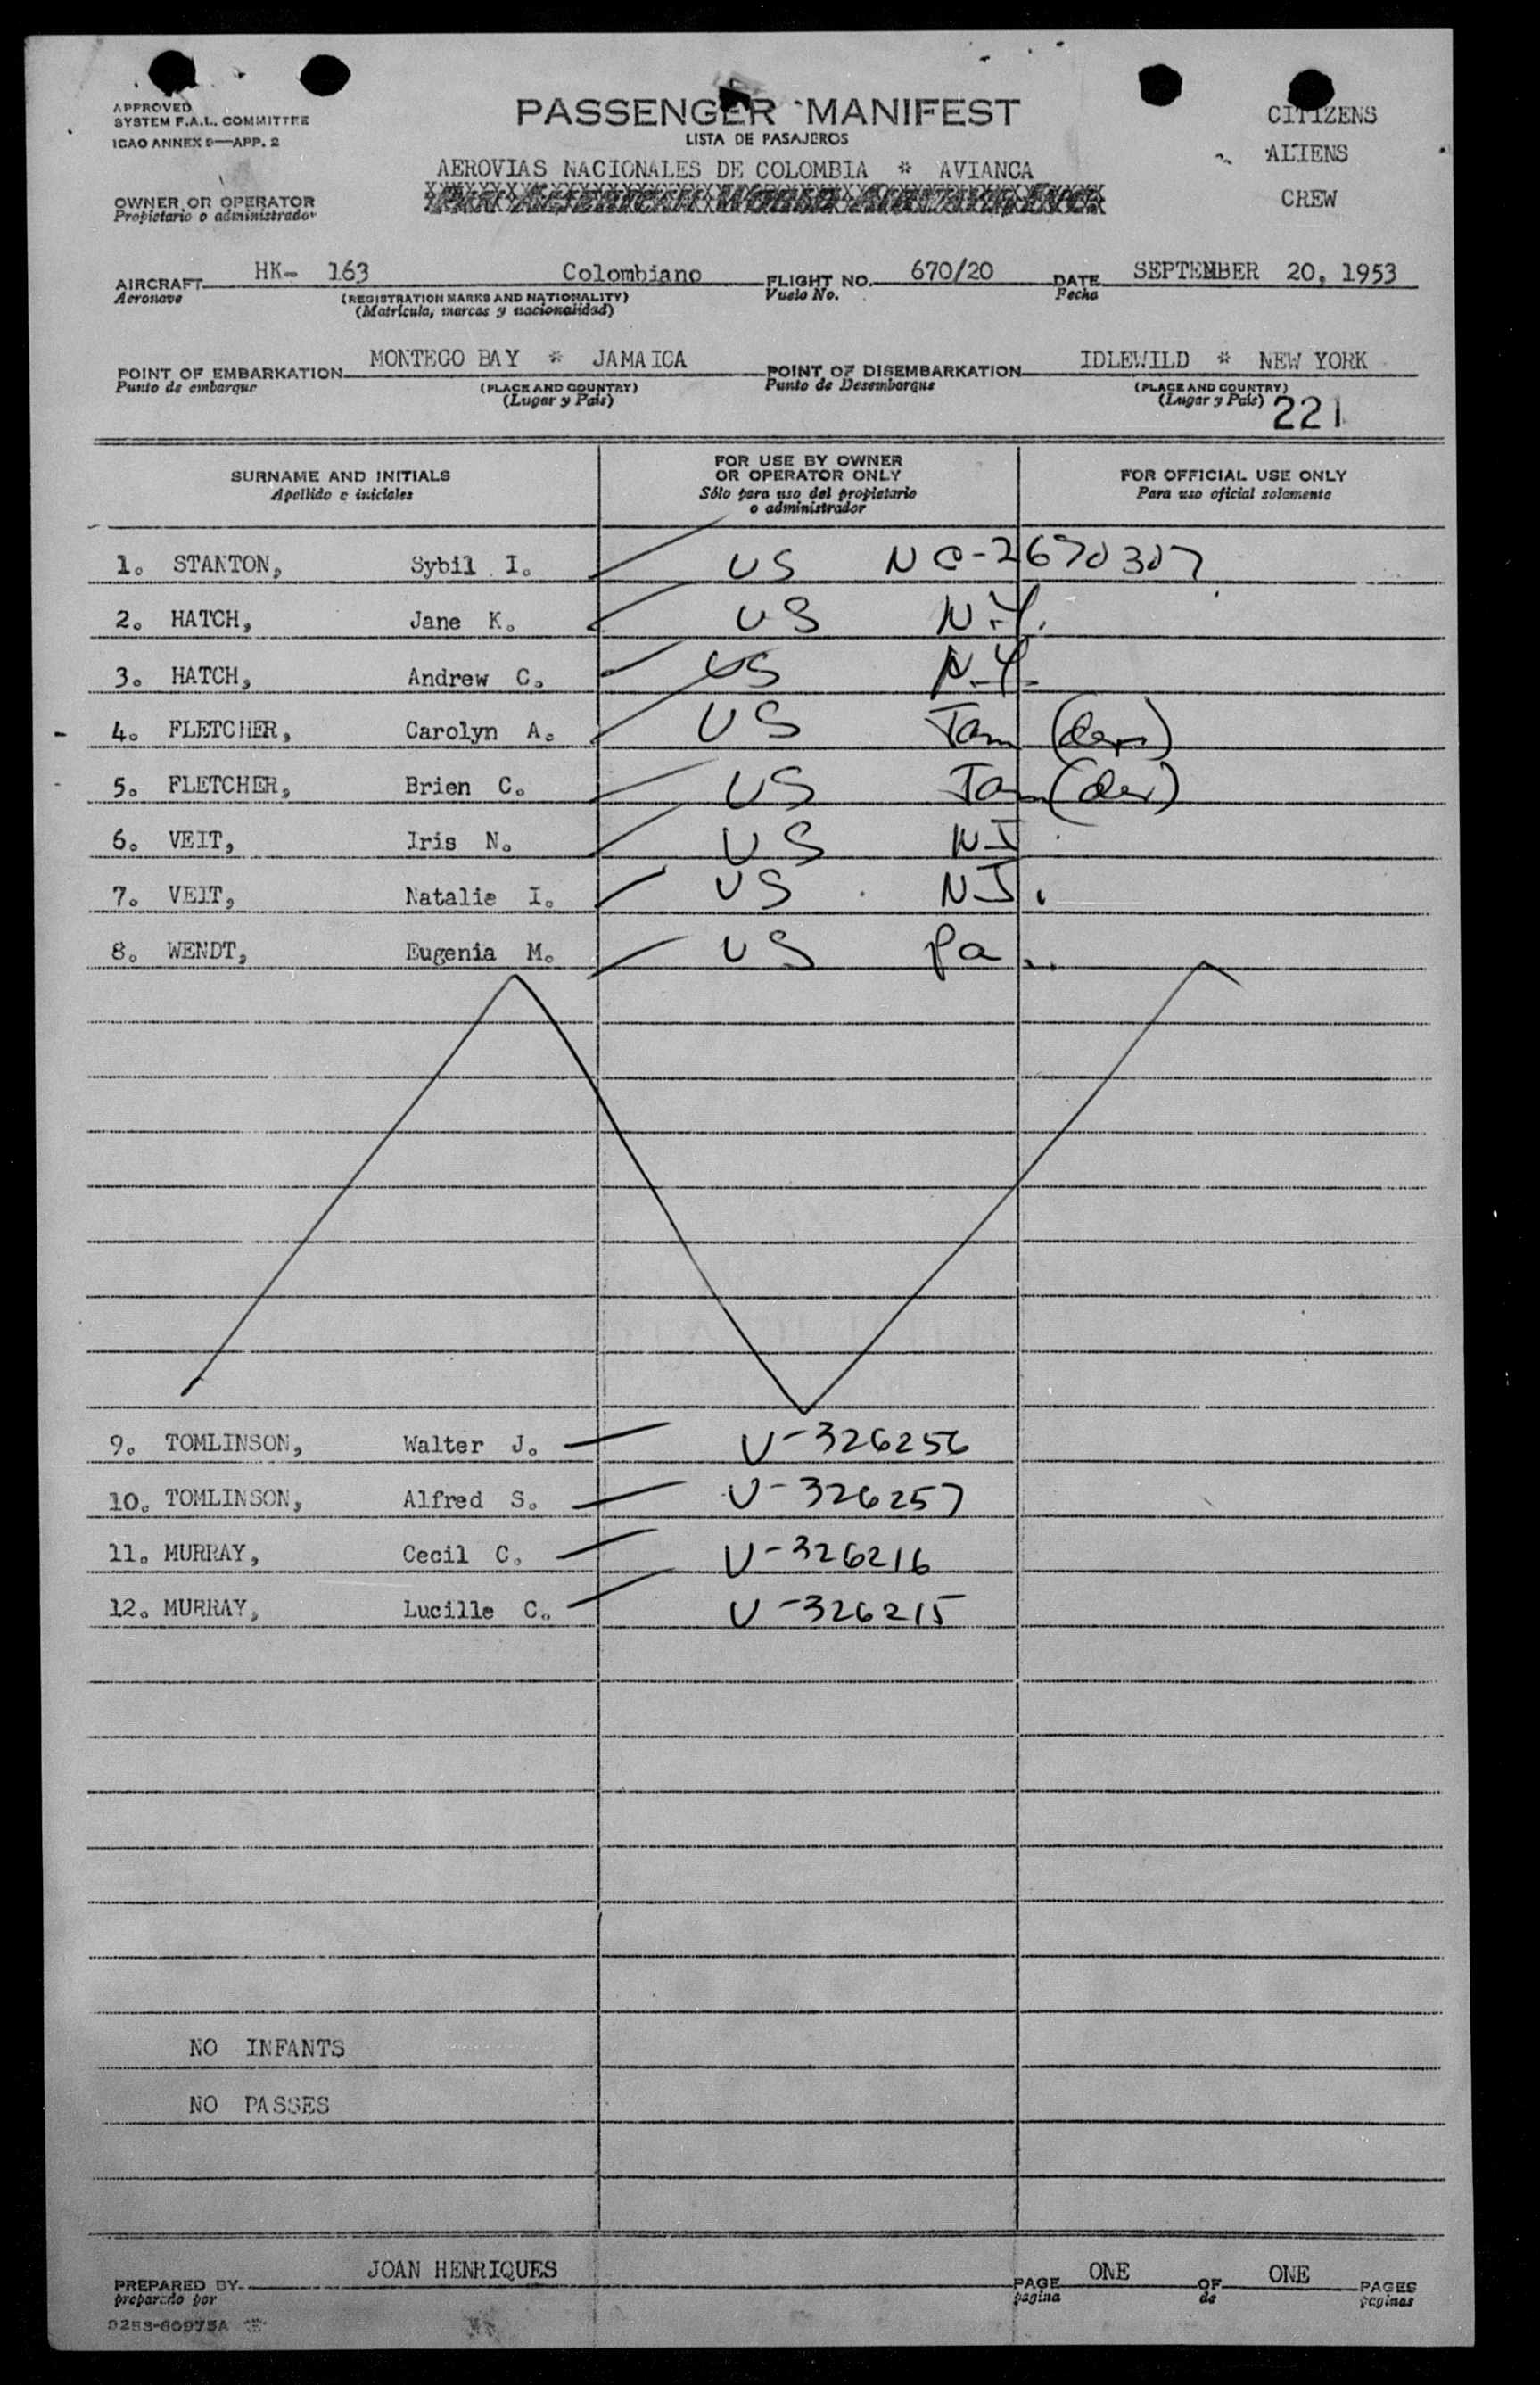 APPROVED
SYSTEM F.A.L. COMMITTEE
ICAO ANNEX 9—APP. 2
PASSENGER MANIFEST
LISTA DE PASAJEROS
CITIZENS
ALIENS
CREW
AEROVIAS NACIONALES DE COLOMBIA * AVIANCA
PAN AMERICAN WORLD AIRWAYS, INC.
OWNER OR OPERATOR
Propietario o administrador
AIRCRAFT HK- 163 Colombiano FLIGHT NO. 670/20 DATE SEPTEMBER 20, 1953
Aeronave (REGISTRATION MARKS AND NATIONALITY) Vuelo No. Fecha
(Matrícula, marcas y nacionalidad)
POINT OF EMBARKATION MONTEGO BAY * JAMAICA POINT OF DISEMBARKATION IDLEWILD * NEW YORK
Punto de embarque (PLACE AND COUNTRY) Punto de Desembarque (PLACE AND COUNTRY)
(Lugar y País) (Lugar y País) 221
SURNAME AND INITIALS
Apellido e iniciales
FOR USE BY OWNER
OR OPERATOR ONLY
Sólo para uso del propietario
o administrador
FOR OFFICIAL USE ONLY
Para uso oficial solamente
1. STANTON, Sybil I. US NC-2670307
2. HATCH, Jane K. US N.Y.
3. HATCH, Andrew C. US N.Y.
4. FLETCHER, Carolyn A. US Jam
5. FLETCHER, Brien C. US Jam
6. VEIT, Iris N. US NJ
7. VEIT, Natalie I. US NJ.
8. WENDT, Eugenia M. US Pa.
9. TOMLINSON, Walter J. V-326256
10. TOMLINSON, Alfred S. V-326257
11. MURRAY, Cecil C. V-326216
12. MURRAY, Lucille C. V-326215
NO INFANTS
NO PASSES
PREPARED BY JOAN HENRIQUES PAGE ONE OF ONE PAGES
preparado por pagina de paginas